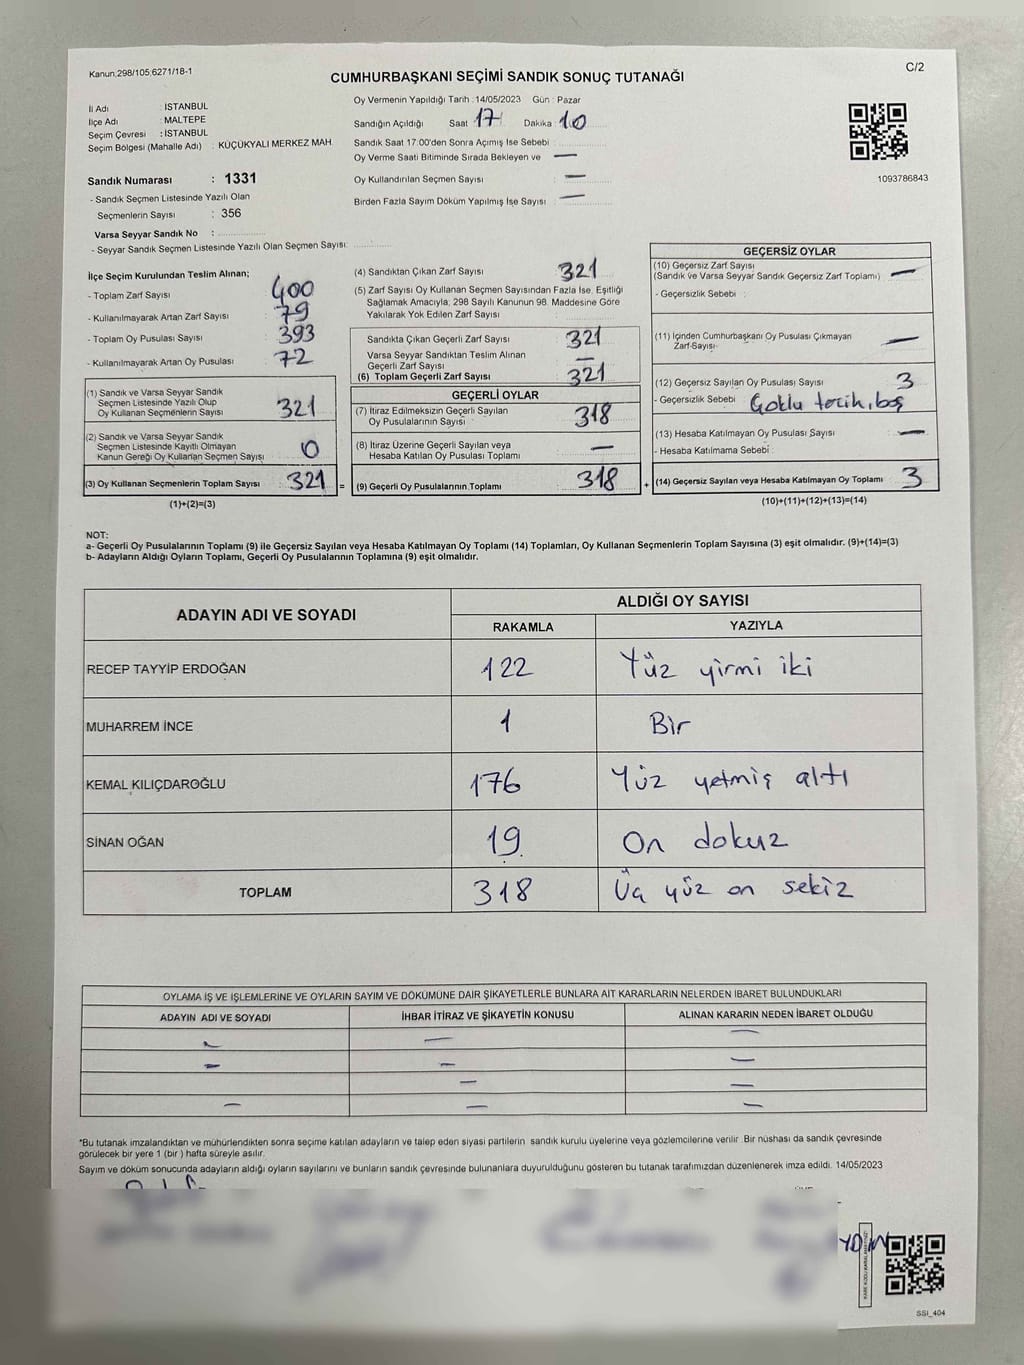 Kanun,298/105;6271/18-1
CUMHURBAŞKANI SEÇİMİ SANDIK SONUÇ TUTANAĞI
C/2
İl Adı : İSTANBUL
İlçe Adı : MALTEPE
Seçim Çevresi : İSTANBUL
Seçim Bölgesi (Mahalle Adı) : KÜÇÜKYALI MERKEZ MAH.
Sandık Numarası : 1331
- Sandık Seçmen Listesinde Yazılı Olan
Seçmenlerin Sayısı : 356
Varsa Seyyar Sandık No :
- Seyyar Sandık Seçmen Listesinde Yazılı Olan Seçmen Sayısı:
Oy Vermenin Yapıldığı Tarih : 14/05/2023 Gün : Pazar
Sandığın Açıldığı Saat 17 Dakika 10
Sandık Saat 17:00'den Sonra Açımış İse Sebebi :
Oy Verme Saati Bitiminde Sırada Bekleyen ve —
Oy Kullandırılan Seçmen Sayısı : —
Birden Fazla Sayım Döküm Yapılmış İse Sayısı : —
1093786843
İlçe Seçim Kurulundan Teslim Alınan;
- Toplam Zarf Sayısı : 400
- Kullanılmayarak Artan Zarf Sayısı : 79
- Toplam Oy Pusulası Sayısı : 393
- Kullanılmayarak Artan Oy Pusulası : 72
(1) Sandık ve Varsa Seyyar Sandık
Seçmen Listesinde Yazılı Olup
Oy Kullanan Seçmenlerin Sayısı : 321
(2) Sandık ve Varsa Seyyar Sandık
Seçmen Listesinde Kayıtlı Olmayan
Kanun Gereği Oy Kullanan Seçmen Sayısı : 0
(3) Oy Kullanan Seçmenlerin Toplam Sayısı : 321
(1)+(2)=(3)
(4) Sandıktan Çıkan Zarf Sayısı : 321
(5) Zarf Sayısı Oy Kullanan Seçmen Sayısından Fazla İse, Eşitliği
Sağlamak Amacıyla; 298 Sayılı Kanunun 98. Maddesine Göre
Yakılarak Yok Edilen Zarf Sayısı :
Sandıkta Çıkan Geçerli Zarf Sayısı : 321
Varsa Seyyar Sandıktan Teslim Alınan
Geçerli Zarf Sayısı : —
(6) Toplam Geçerli Zarf Sayısı : 321
GEÇERLİ OYLAR
(7) İtiraz Edilmeksizin Geçerli Sayılan
Oy Pusulalarının Sayısı : 318
(8) İtiraz Üzerine Geçerli Sayılan veya
Hesaba Katılan Oy Pusulası Toplamı : —
= (9) Geçerli Oy Pusulalarının Toplamı : 318
GEÇERSİZ OYLAR
(10) Geçersiz Zarf Sayısı
(Sandık ve Varsa Seyyar Sandık Geçersiz Zarf Toplamı) : —
- Geçersizlik Sebebi :
(11) İçinden Cumhurbaşkanı Oy Pusulası Çıkmayan
Zarf Sayısı : —
(12) Geçersiz Sayılan Oy Pusulası Sayısı : 3
- Geçersizlik Sebebi : Çoklu tercih, boş
(13) Hesaba Katılmayan Oy Pusulası Sayısı : —
- Hesaba Katılmama Sebebi :
+ (14) Geçersiz Sayılan veya Hesaba Katılmayan Oy Toplamı : 3
(10)+(11)+(12)+(13)=(14)
NOT:
a- Geçerli Oy Pusulalarının Toplamı (9) ile Geçersiz Sayılan veya Hesaba Katılmayan Oy Toplamı (14) Toplamları, Oy Kullanan Seçmenlerin Toplam Sayısına (3) eşit olmalıdır. (9)+(14)=(3)
b- Adayların Aldığı Oyların Toplamı, Geçerli Oy Pusulalarının Toplamına (9) eşit olmalıdır.
ADAYIN ADI VE SOYADI ALDIĞI OY SAYISI
RAKAMLA YAZIYLA
RECEP TAYYİP ERDOĞAN 122 Yüz yirmi iki
MUHARREM İNCE 1 Bir
KEMAL KILIÇDAROĞLU 176 Yüz yetmiş altı
SİNAN OĞAN 19 On dokuz
TOPLAM 318 Üç yüz on sekiz
OYLAMA İŞ VE İŞLEMLERİNE VE OYLARIN SAYIM VE DÖKÜMÜNE DAİR ŞİKAYETLERLE BUNLARA AİT KARARLARIN NELERDEN İBARET BULUNDUKLARI
ADAYIN ADI VE SOYADI İHBAR İTİRAZ VE ŞİKAYETİN KONUSU ALINAN KARARIN NEDEN İBARET OLDUĞU
— — —
— — —
— —
— — —
*Bu tutanak imzalandıktan ve mühürlendikten sonra seçime katılan adayların ve talep eden siyasi partilerin sandık kurulu üyelerine veya gözlemcilerine verilir. Bir nüshası da sandık çevresinde
görülecek bir yere 1 (bir ) hafta süreyle asılır.
Sayım ve döküm sonucunda adayların aldığı oyların sayılarını ve bunların sandık çevresinde bulunanlara duyurulduğunu gösteren bu tutanak tarafımızdan düzenlenerek imza edildi. 14/05/2023
YDIN
SSI_404